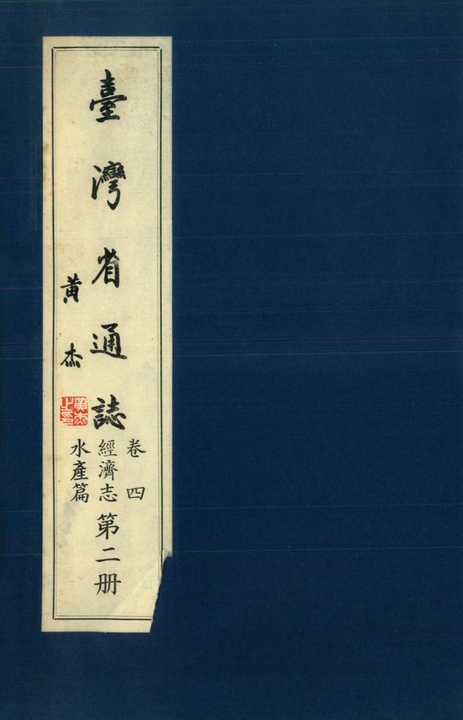 臺灣省通誌
卷四
經濟志
水產篇
第二册
黃杰